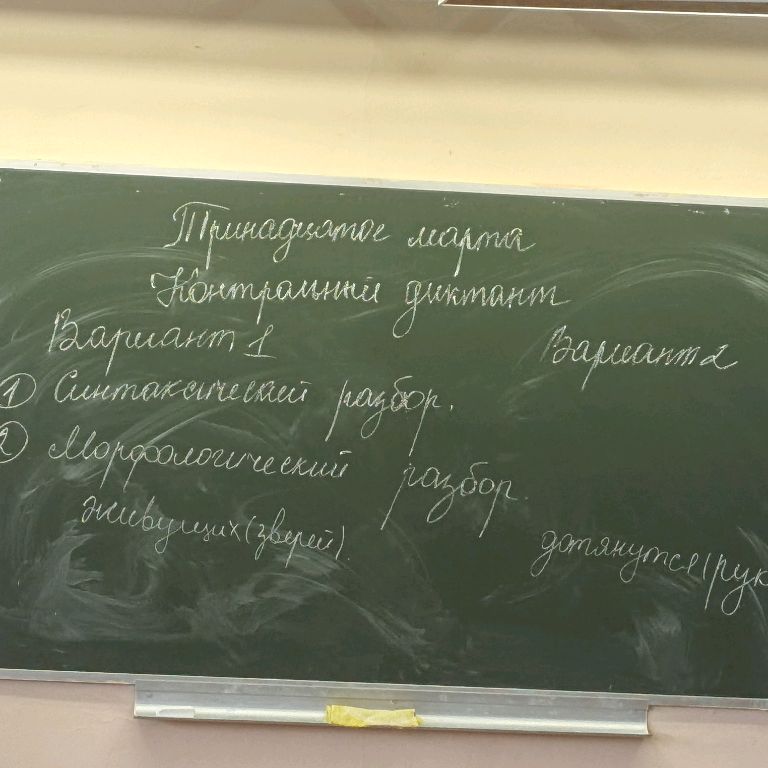 Тринадцатое марта
Контрольный диктант
Вариант 1 Вариант 2
① Синтаксический разбор.
② Морфологический разбор.
живущих (зверей). дотянутся (рук